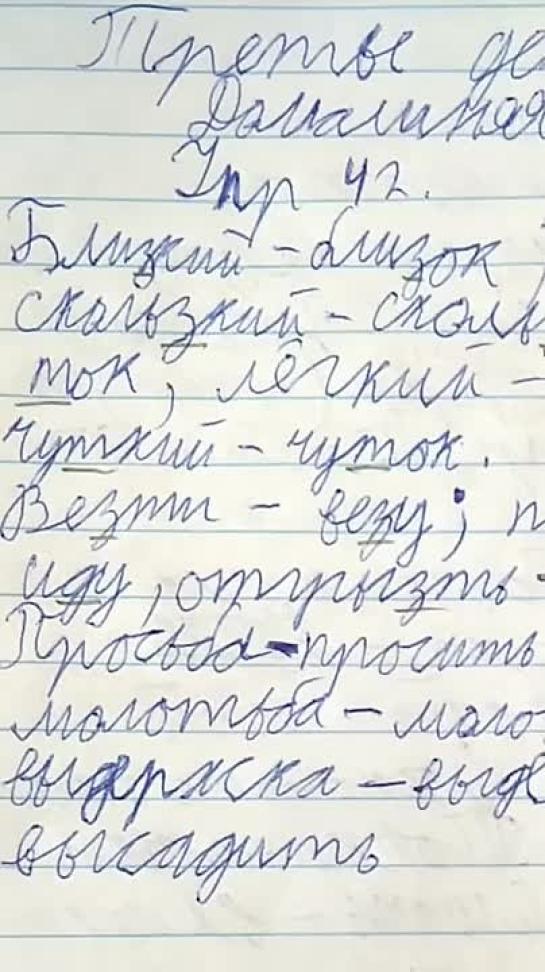 Третье де
Домашняя
Упр 42.
Близкий - близок;
скользкий - сколь
ток, лёгкий -
чуткий - чуток.
Везти - везу; п
иду, отгрызть -
Просьба - просить
молотьба - моло
выдержка - выде
высадить